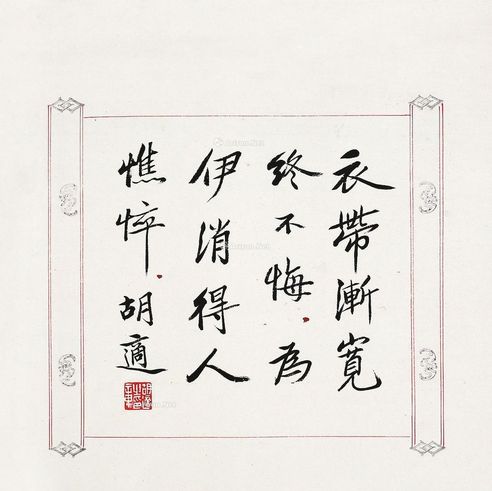 衣帶漸寬
終不悔為
伊消得人
憔悴胡適